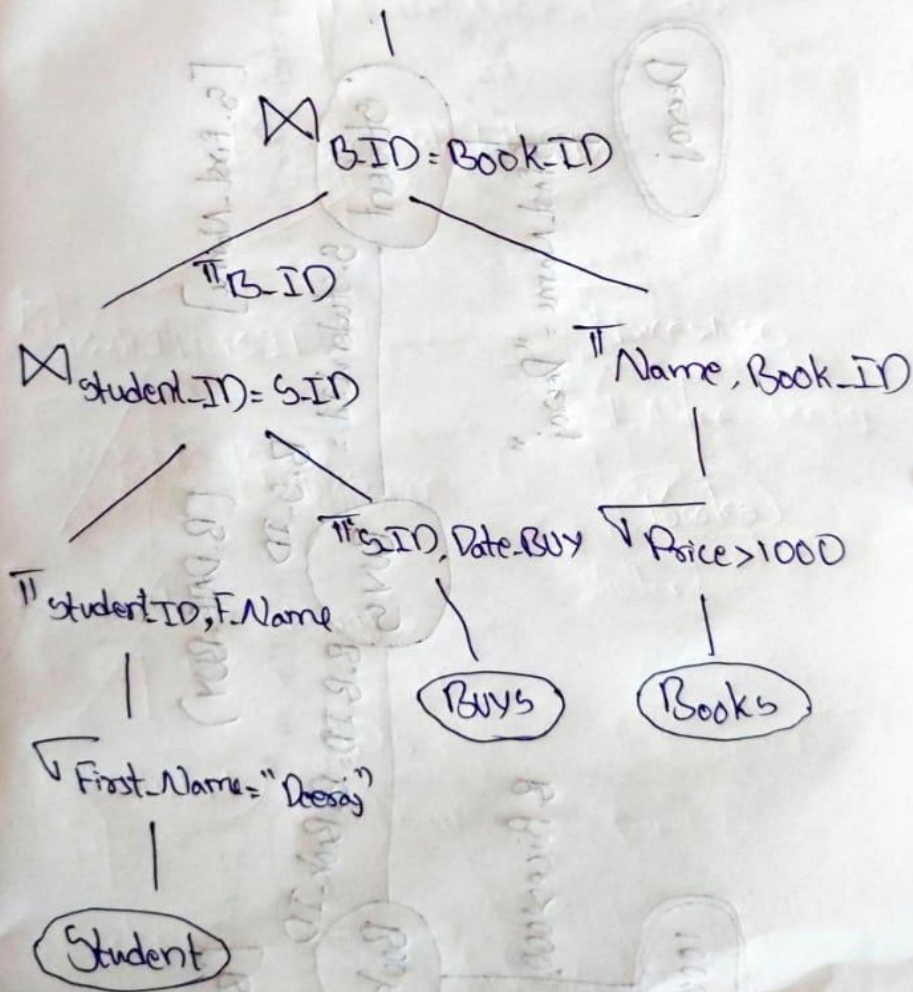 ⋈ B_ID = Book_ID
π B_ID
⋈ Student_ID = S_ID
π Name, Book_ID
π S_ID, Date_Buy
σ Price > 1000
π Student_ID, F_Name
Buys
Books
σ First_Name = "Deeraj"
Student